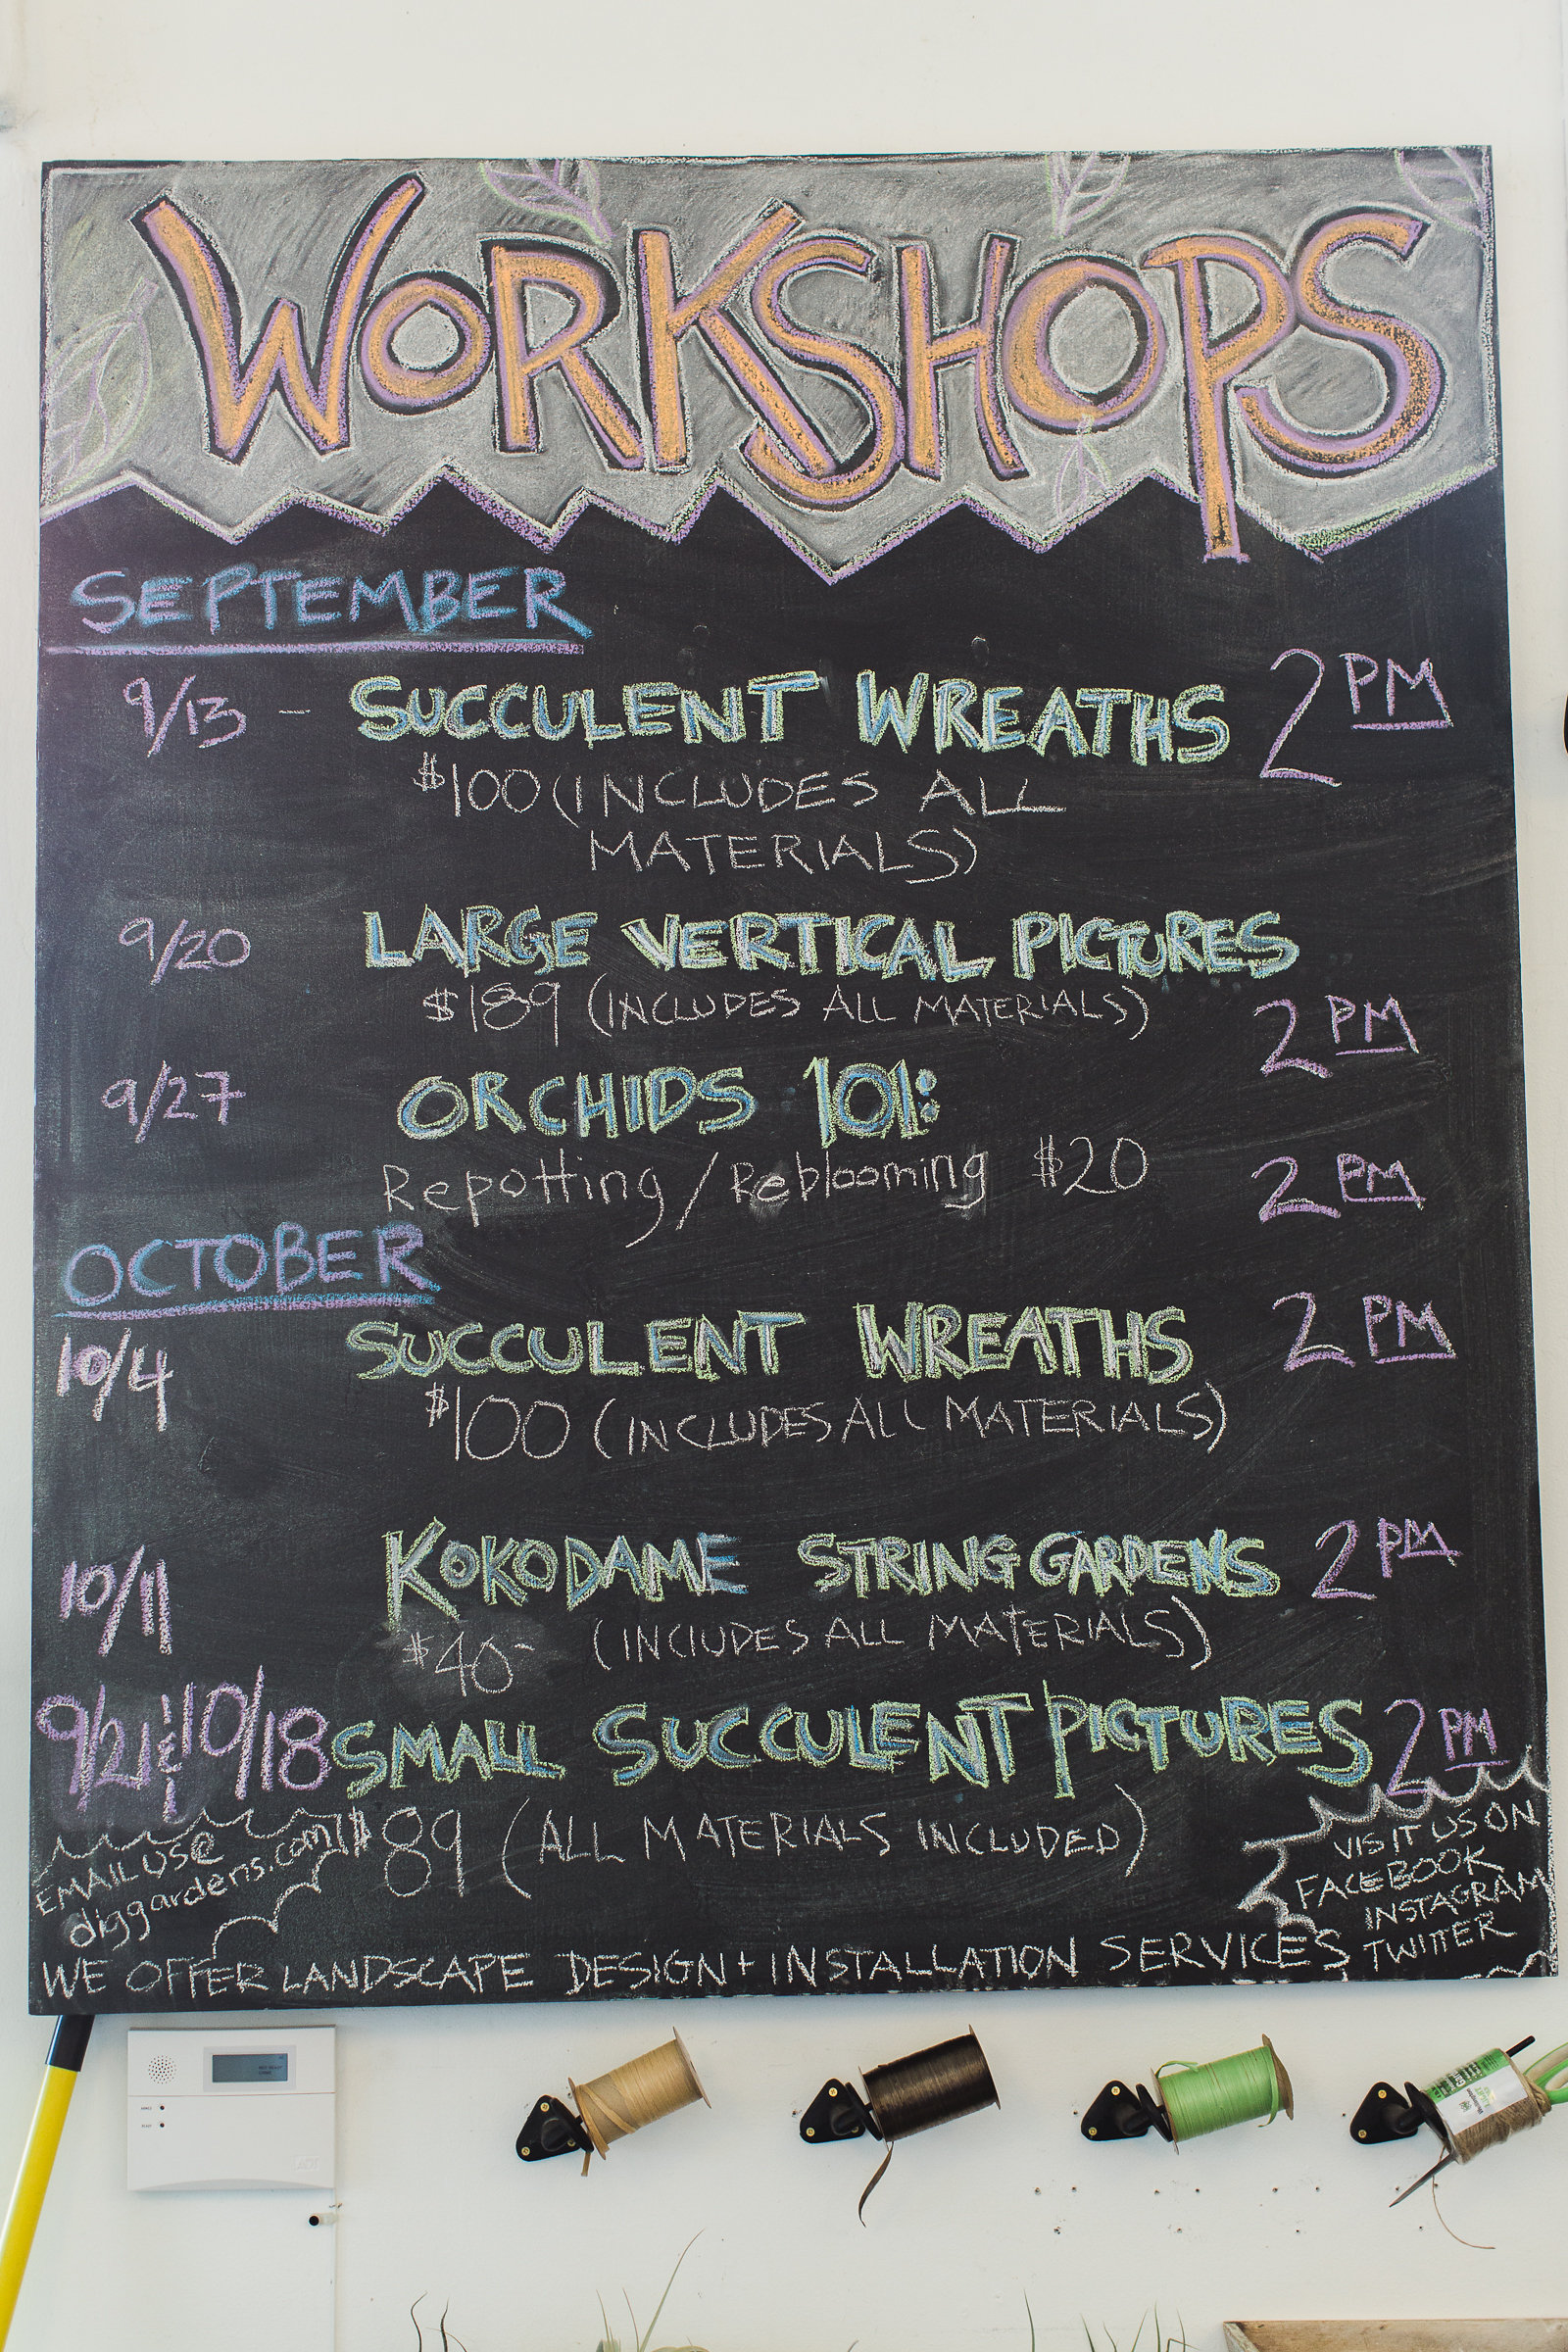 WORKSHOPS
SEPTEMBER
9/13 - SUCCULENT WREATHS 2 PM
$100 (INCLUDES ALL
MATERIALS)
9/20 LARGE VERTICAL PICTURES
$189 (INCLUDES ALL MATERIALS) 2 PM
9/27 ORCHIDS 101:
Repotting/Reblooming $20 2 PM
OCTOBER
10/4 SUCCULENT WREATHS 2 PM
$100 (INCLUDES ALL MATERIALS)
10/11 KOKODAME STRING GARDENS 2 PM
$40- (INCLUDES ALL MATERIALS)
9/21 & 10/18 SMALL SUCCULENT PICTURES 2 PM
$89 (ALL MATERIALS INCLUDED)
EMAIL US @
diggardens.com
VISIT US ON
FACEBOOK
INSTAGRAM
TWITTER
WE OFFER LANDSCAPE DESIGN + INSTALLATION SERVICES